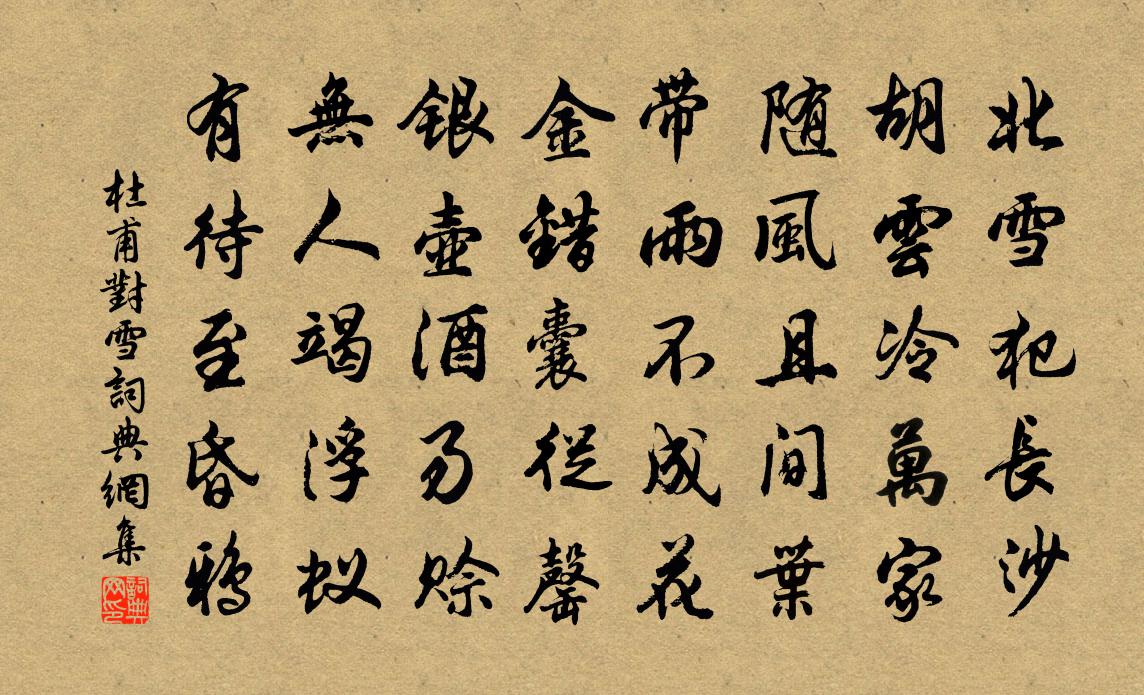 北雪犯長沙
胡雲冷萬家
随風且间葉
带雨不成花
金錯囊從罄
銀壺酒易赊
無人竭浮蚁
有待至昏鸦
杜甫對雪詞典網集
詞典网印